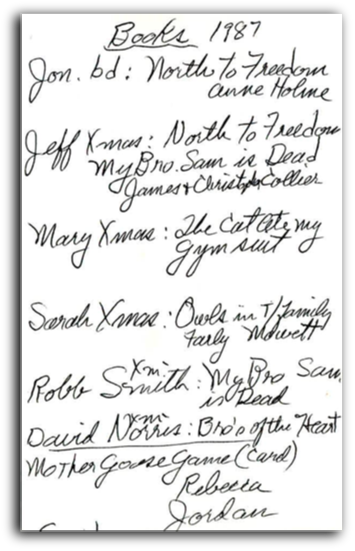 Books 1987
Jon. bd: North To Freedom
Anne Holme
Jeff Xmas: North to Freedom
My Bro. Sam is Dead
James & Christopher Collier
Mary Xmas: The Cat Ate my
gym suit
Sarah Xmas: Owls in T/Family
Farly Mowett
Robb Smith: Xm: My Bro Sam
is Dead
David Norris: Xm: Bro's of the Heart
Mother Goose Game (Card)
Rebecca
Jordan